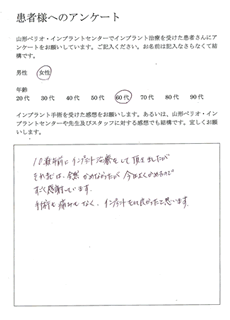 患者様へのアンケート
山形ペリオ・インプラントセンターでインプラント治療を受けた患者さんにア
ンケートをお願いしています。ご記入ください。お名前は記入なさらなくて結
構です。
男性 女性
年齢
20代 30代 40代 50代 60代 70代 80代 90代
インプラント手術を受けた感想をお願いします。また、山形ペリオ・インプ
ラントセンターや先生及びスタッフに対する感想でも結構です。宜しくお願
いします。
10年前にインプラント治療をして頂きましたが
それまでは、全然かめなかったのが今はよくかめるので
すごく感謝しています。
手術も痛みもなく、インプラントをして良かったと思います。